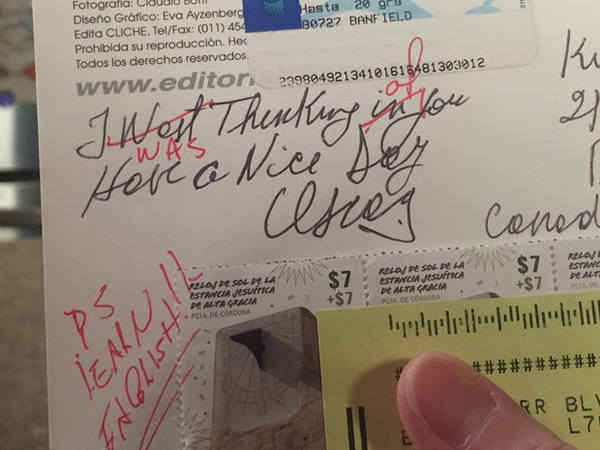 Fotografía: Claudio Bo
Diseño Gráfico: Eva Ayzenberg
Edita CLICHE, Tel/Fax: (011) 454
Prohibida su reproducción. Hec
Todos los derechos reservados.
www.editor
Hasta 20 grs
B0727 BANFIELD
I West Thinking in you
WAS
of
Have a Nice Day
Oscar
Canad
PS
LEARN
ENGLISH!
RELOJ DE SOL DE LA
ESTANCIA JESUÍTICA
DE ALTA GRACIA
PCIA. DE CÓRDOBA
$7
+$7
RELOJ DE SOL DE LA
ESTANCIA JESUÍTICA
DE ALTA GRACIA
PCIA. DE CÓRDOBA
$7
+$7
RELOJ DE
ESTANCIA
DE ALTA
PCIA. DE
############
RR BLV
L7